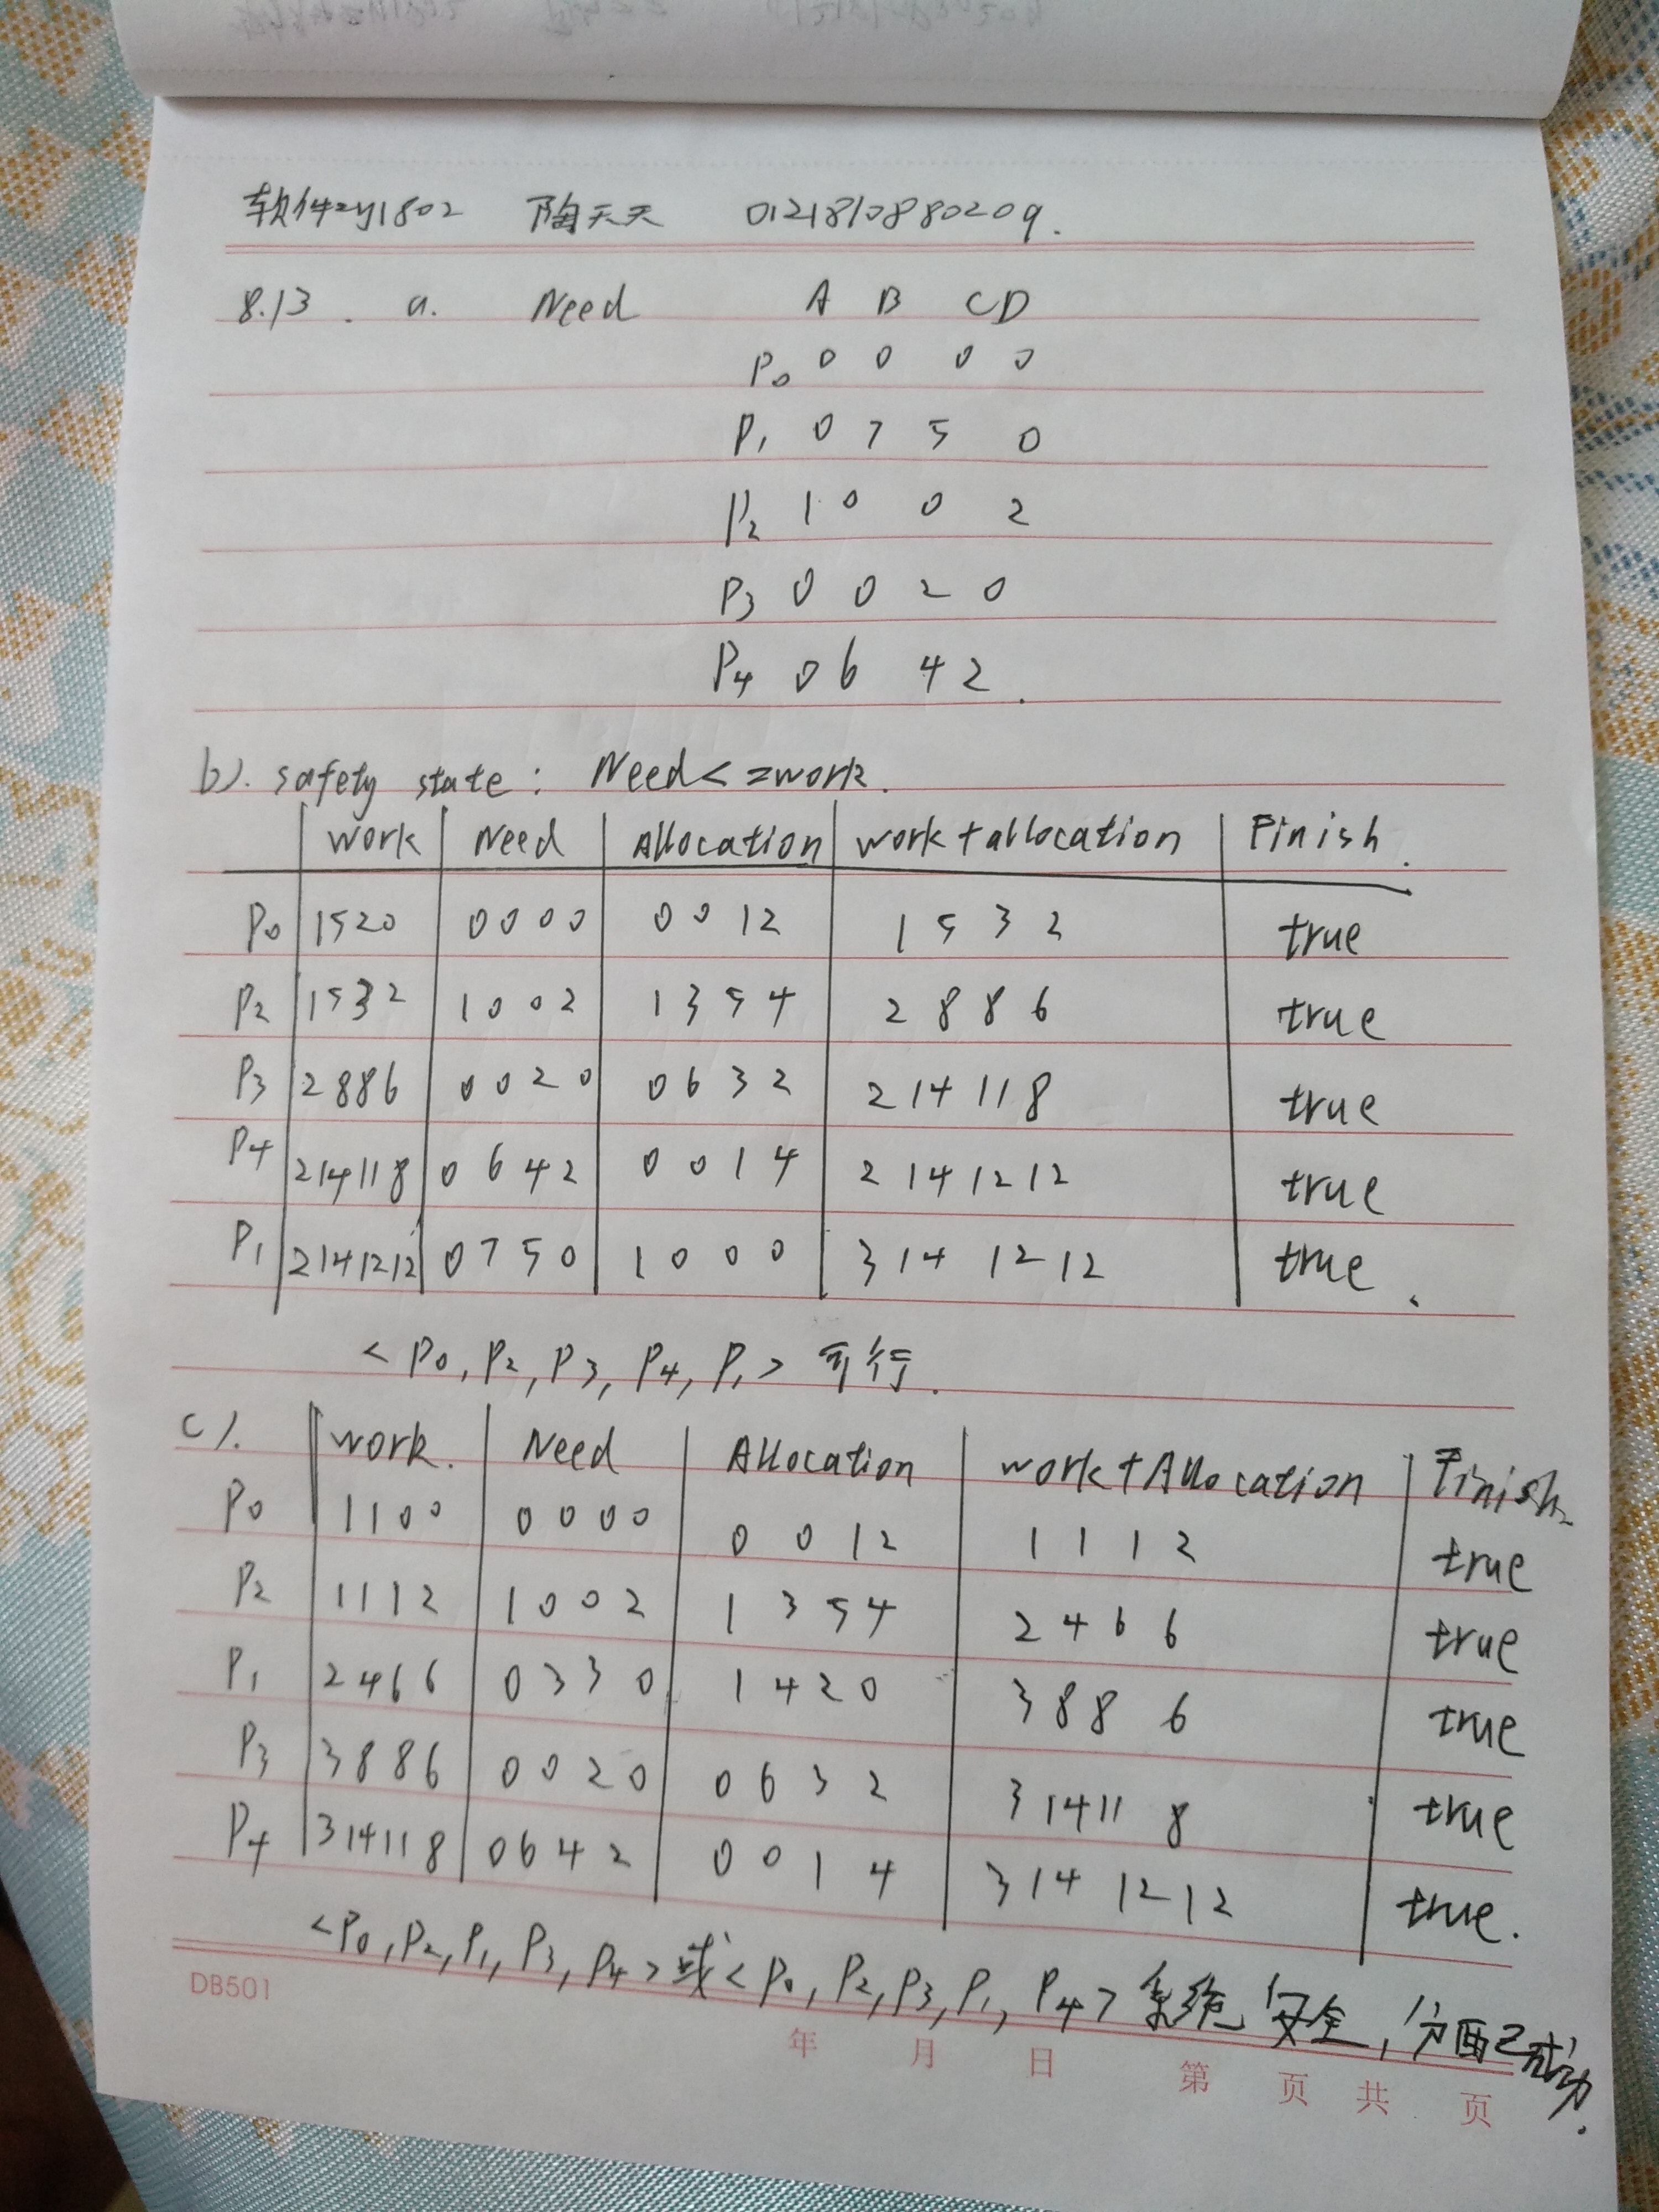 软件zy1802 陶天天 0121810880209.
8.13. a. Need A B C D
P0 0 0 0 0
P1 0 7 5 0
P2 1 0 0 2
P3 0 0 2 0
P4 0 6 4 2.
b). safety state: Need<=work.
work Need Allocation work+allocation Finish.
P0 1520 0000 0012 1532 true
P2 1532 1002 1354 2886 true
P3 2886 0020 0632 2 14 11 8 true
P4 2 14 11 8 0642 0014 2 14 12 12 true
P1 2 14 12 12 0750 1000 3 14 12 12 true.
<P0, P2, P3, P4, P1> 可行.
c). work. Need Allocation work+Allocation Finish
P0 1100 0000 0012 1112 true
P2 1112 1002 1354 2466 true
P1 2466 0330 1420 3886 true
P3 3886 0020 0632 3 14 11 8 true
P4 3 14 11 8 0642 0014 3 14 12 12 true.
<P0, P2, P1, P3, P4>或<P0, P2, P3, P1, P4>系统安全,分配已成功.
DB501
年 月 日 第 页 共 页